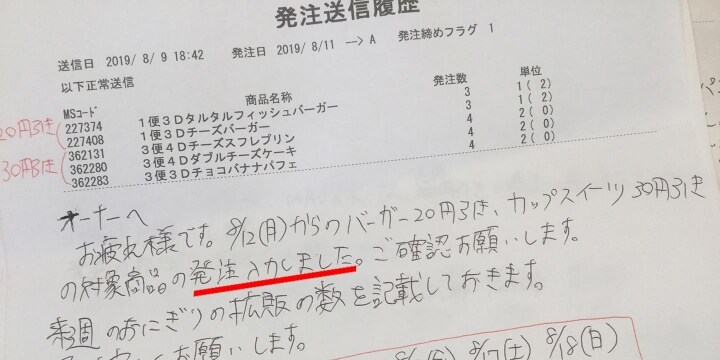 発注送信履歴
送信日 2019/ 8/ 9 18:42 発注日 2019/ 8/11 --> A 発注締めフラグ 1
以下正常送信
MSコード 商品名称 発注数 単位
227374 1便3Dタルタルフィッシュバーガー 3 1( 2)
227408 1便3Dチーズバーガー 3 1( 2)
362131 3便4Dチーズスフレプリン 4 2( 0)
362280 3便4Dダブルチーズケーキ 4 2( 0)
362283 3便3Dチョコバナナパフェ 4 2( 0)
20円引き
30円引き
オーナーへ
お疲れ様です。8/12(月)からのバーガー20円引き、カップスイーツ30円引き
の対象商品の発注入力しました。ご確認お願いします。
来週のおにぎりの拡販の数を記載しておきます。
お願いします。
8/17(土) 8/18(日)